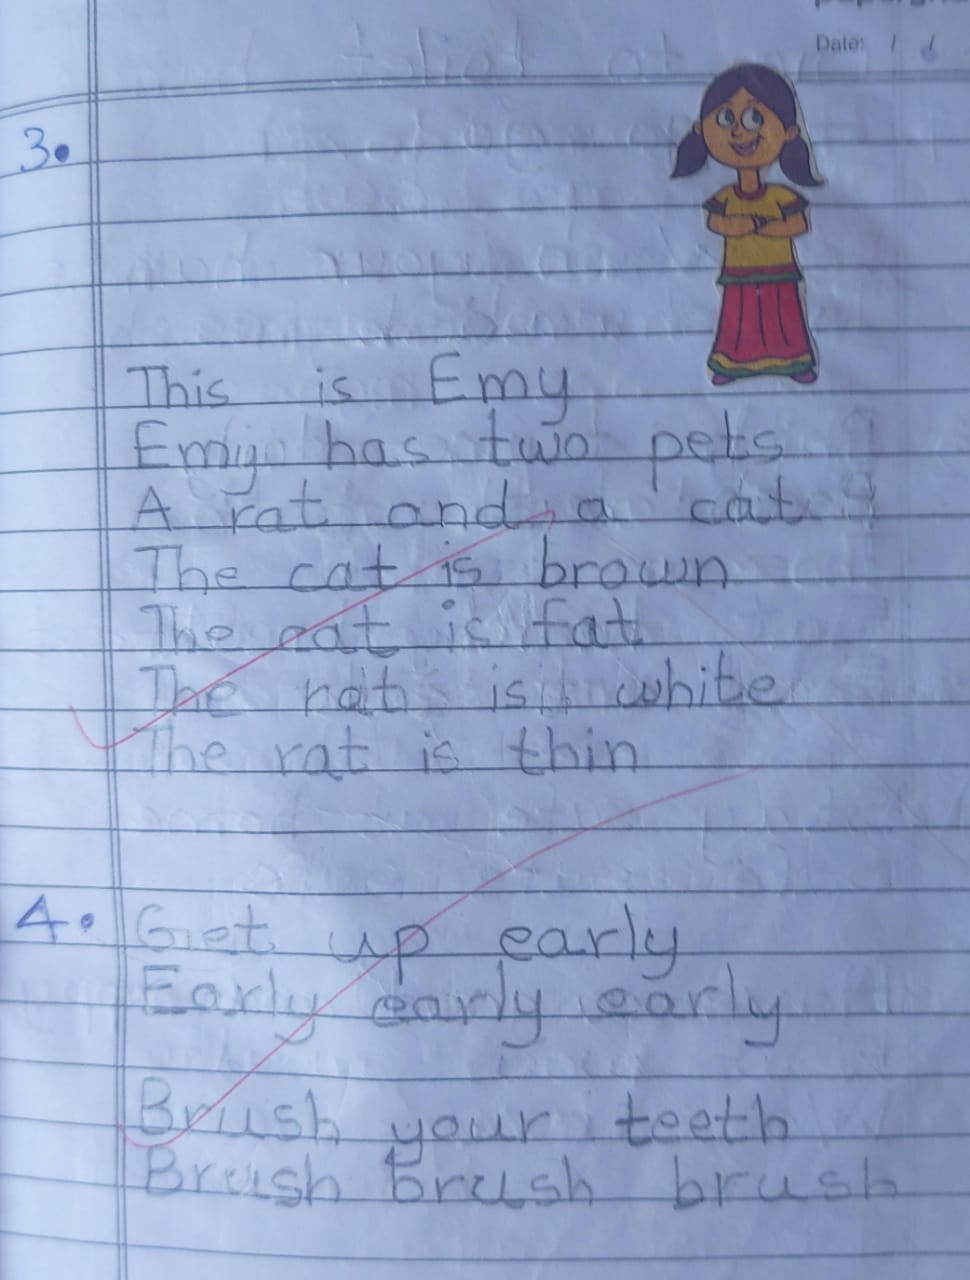 Date:
3.
This is Emy
Emy has two pets
A rat and a cat
The cat is brown
The cat is fat
The rat is white
The rat is thin
4. Get up early
Early early early
Brush your teeth
Brush brush brush